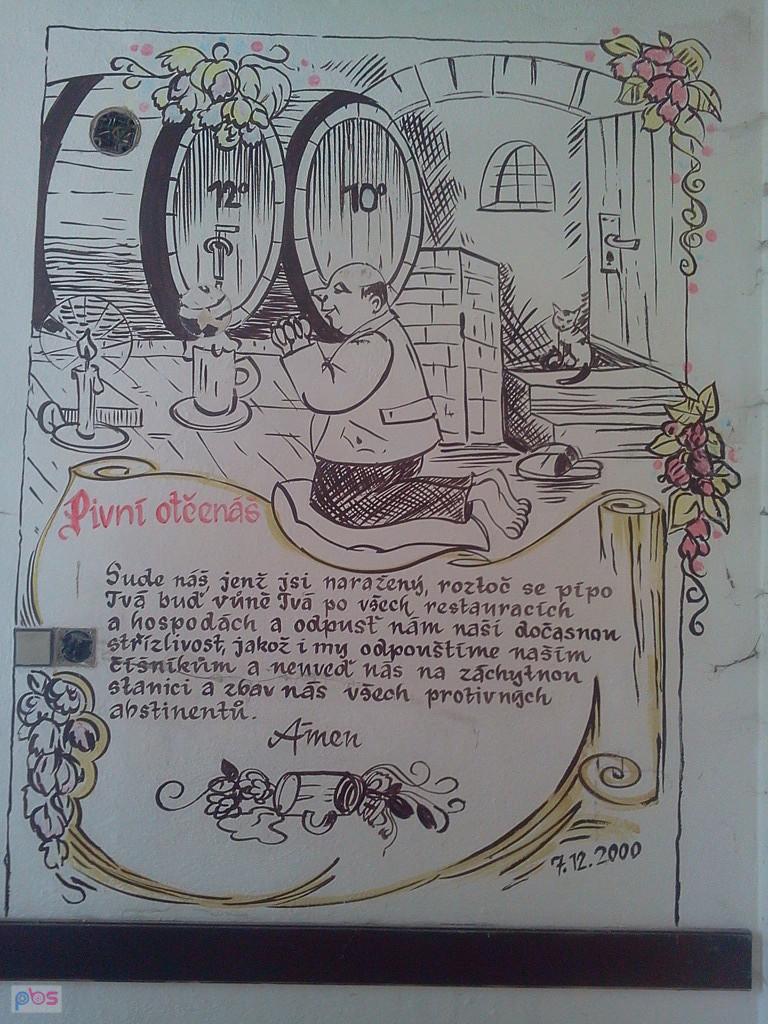 12°
10°
Pivní otčenáš
Sude náš, jenž jsi naražený, roztoč se pípo
Tvá buď vůně Tvá po všech restauracích
a hospodách a odpusť nám naší dočasnou
střízlivost, jakož i my odpouštíme naším
číšníkům a neuveď nás na záchytnou
stanici a zbav nás všech protivných
abstinentů.
Ámen
7.12.2000
pbs